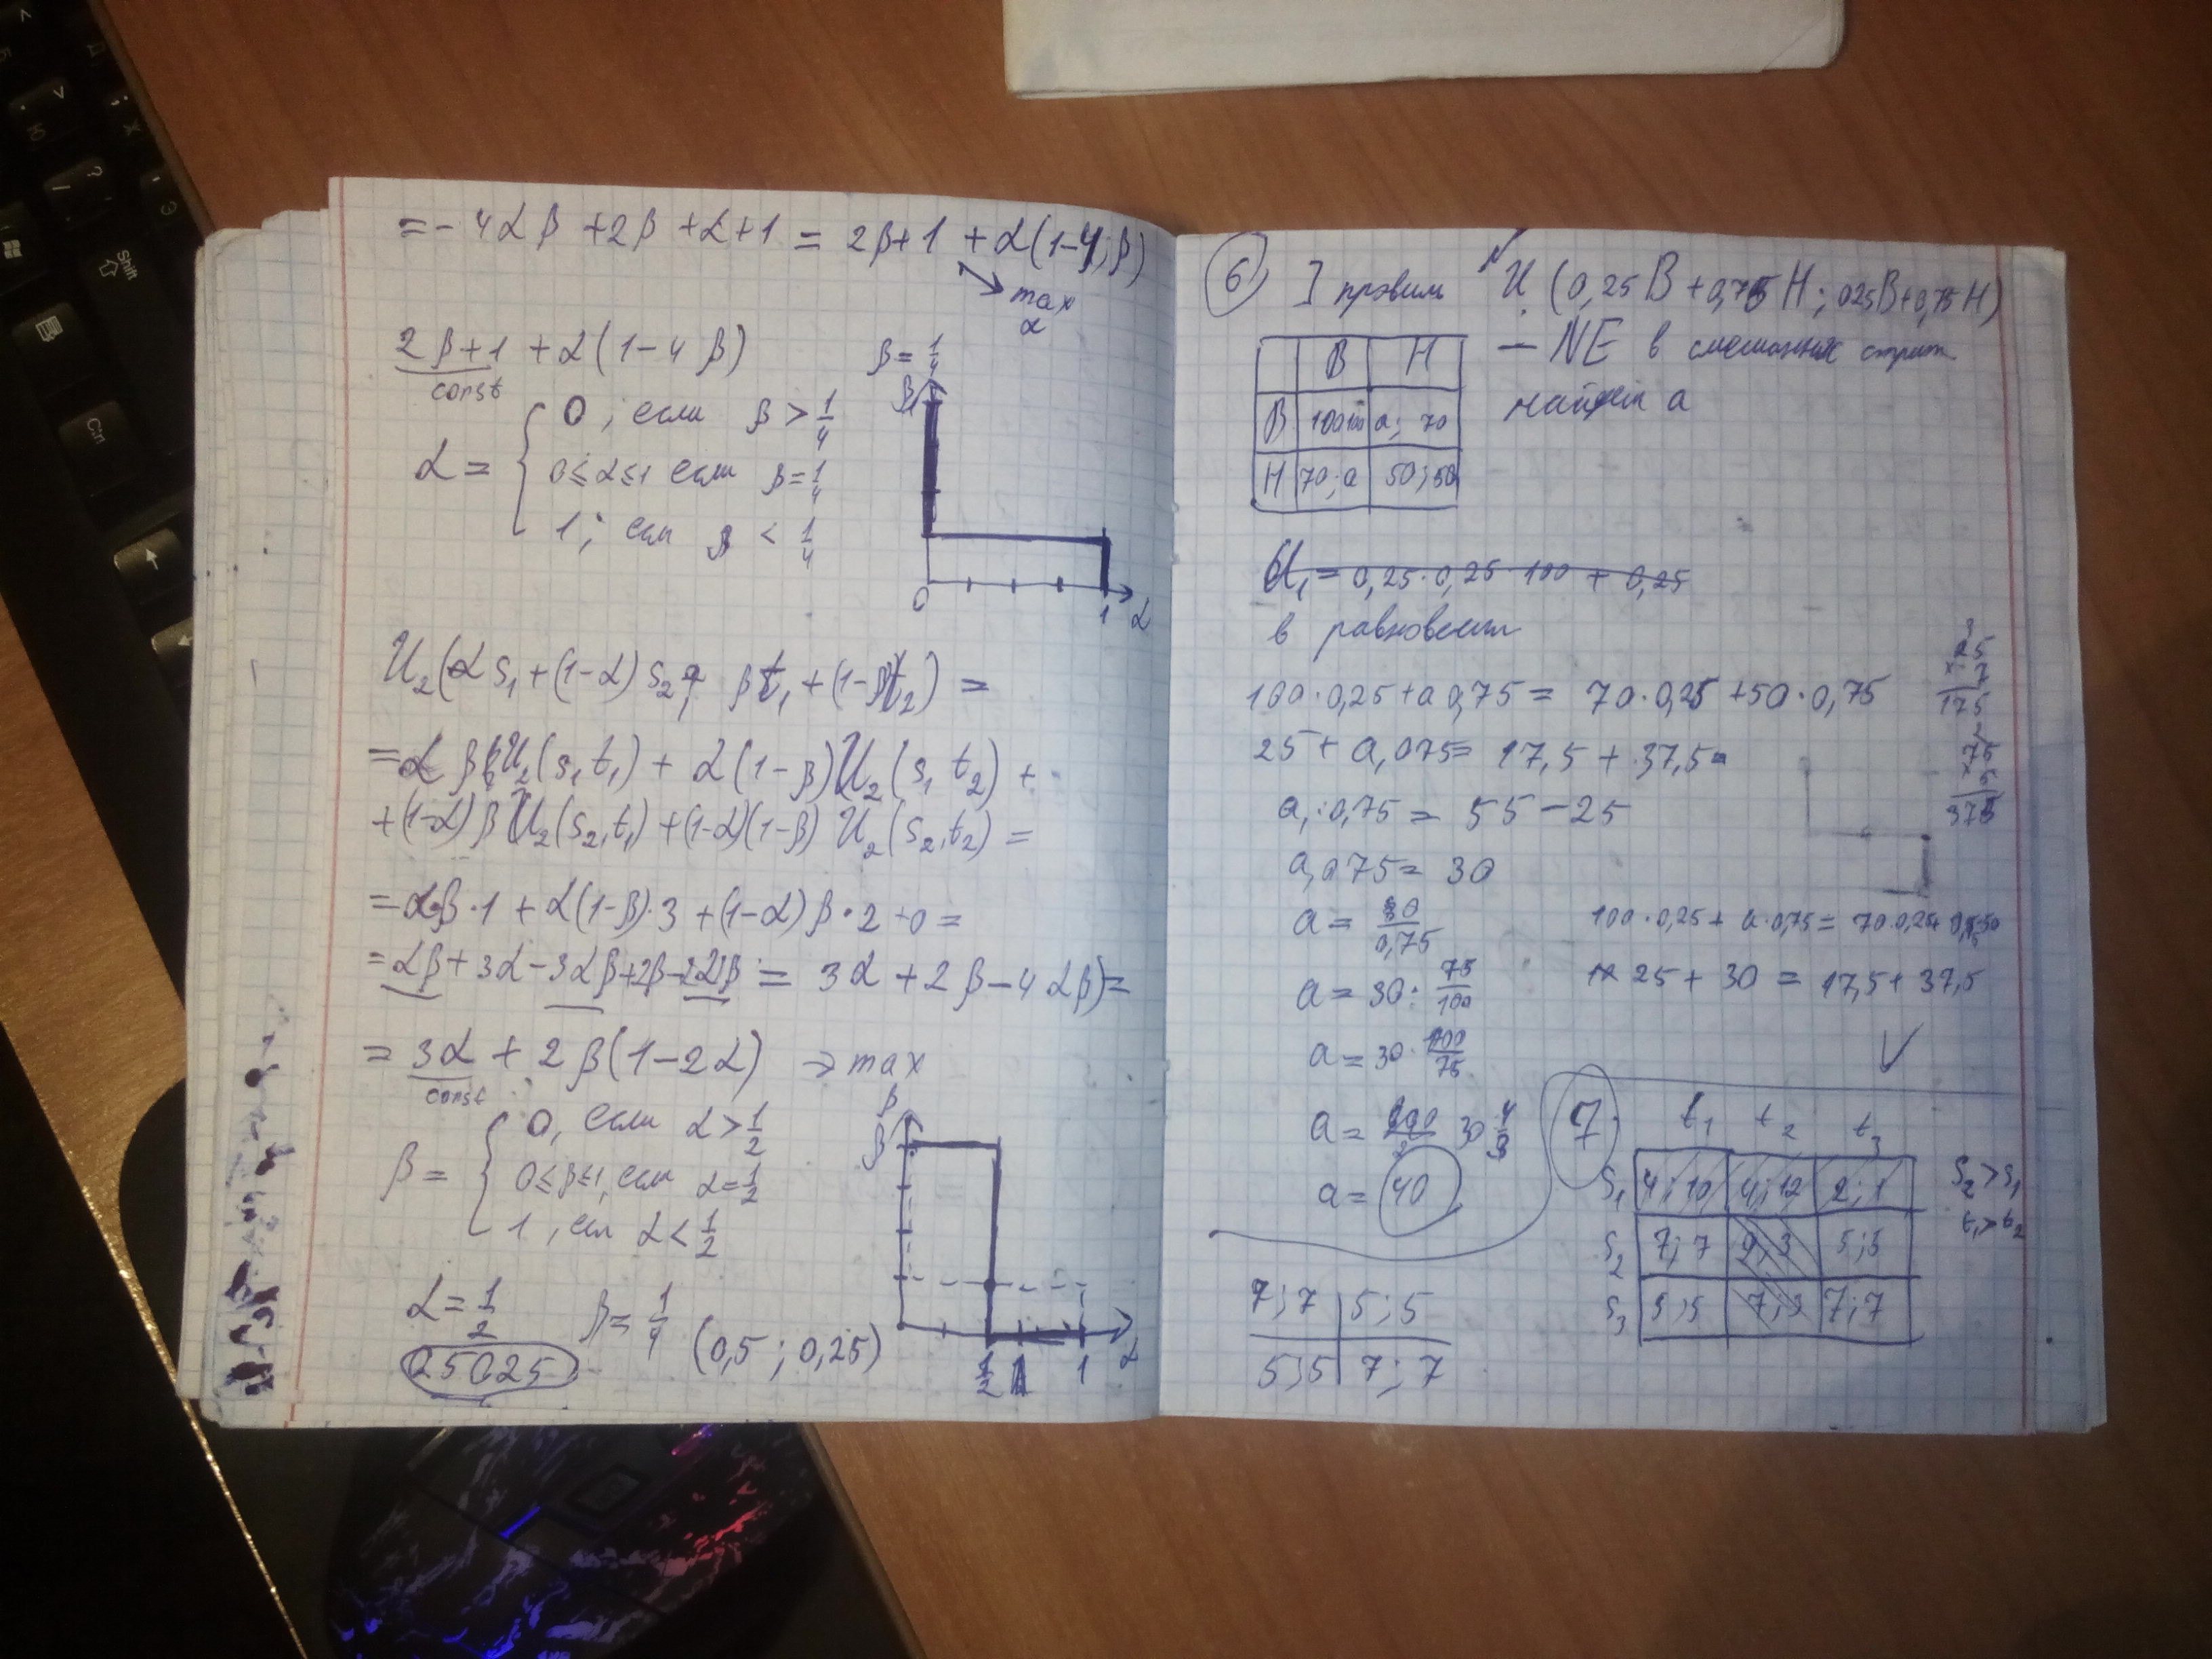 = - 4αβ + 2β + α + 1 = 2β + 1 + α(1 - 4β)
max
α
2β + 1 + α(1 - 4β)
const
β = 1/4
β
α = { 0; если β > 1/4
0 ≤ α ≤ 1 если β = 1/4
1; если β < 1/4
0 1 α
U₂(αs₁ + (1-α)s₂; βt₁ + (1-β)t₂) =
= αβU₂(s₁,t₁) + α(1-β)U₂(s₁ t₂) +
+ (1-α)βU₂(s₂,t₁) + (1-α)(1-β) U₂(s₂,t₂) =
= αβ·1 + α(1-β)·3 + (1-α)β·2 + 0 =
= αβ + 3α - 3αβ + 2β - 2αβ = 3α + 2β - 4αβ) =
= 3α + 2β(1 - 2α) → max
const
β = { 0, если α > 1/2
0 ≤ β ≤ 1, если α = 1/2
1, если α < 1/2
β
1/2 1 α
α = 1/2 β = 1/4 (0,5; 0,25)
025025
6
U (0,25B + 0,75H; 025B + 0,75H)
— NE в смешанных страт
найдем a
B H
B 100 100 a; 70
H 70; a 50; 50
U₁ = 0,25·0,25·100 + 0,25
в равновесии
100·0,25 + a 0,75 = 70·0,25 + 50·0,75
25 + a,075 = 17,5 + 37,5
a·0,75 = 55 - 25
a,075 = 30
a = 30/0,75
a = 30 : 75/100
a = 30 · 100/75
a = 30 4/3
a = 40
3
25
× 7
175
2
75
× 5
375
100·0,25 + a·0,75 = 70·0,25 +
25 + 30 = 17,5 + 37,5
7
t₁ t₂ t₃
s₁ 4; 10 4; 12 2; 1
s₂ 7; 7 9; 3 5; 5
s₃ 5; 5 7; 3 7; 7
s₂ > s₁
t₁ > t₂
7; 7 5; 5
5; 5 7; 7